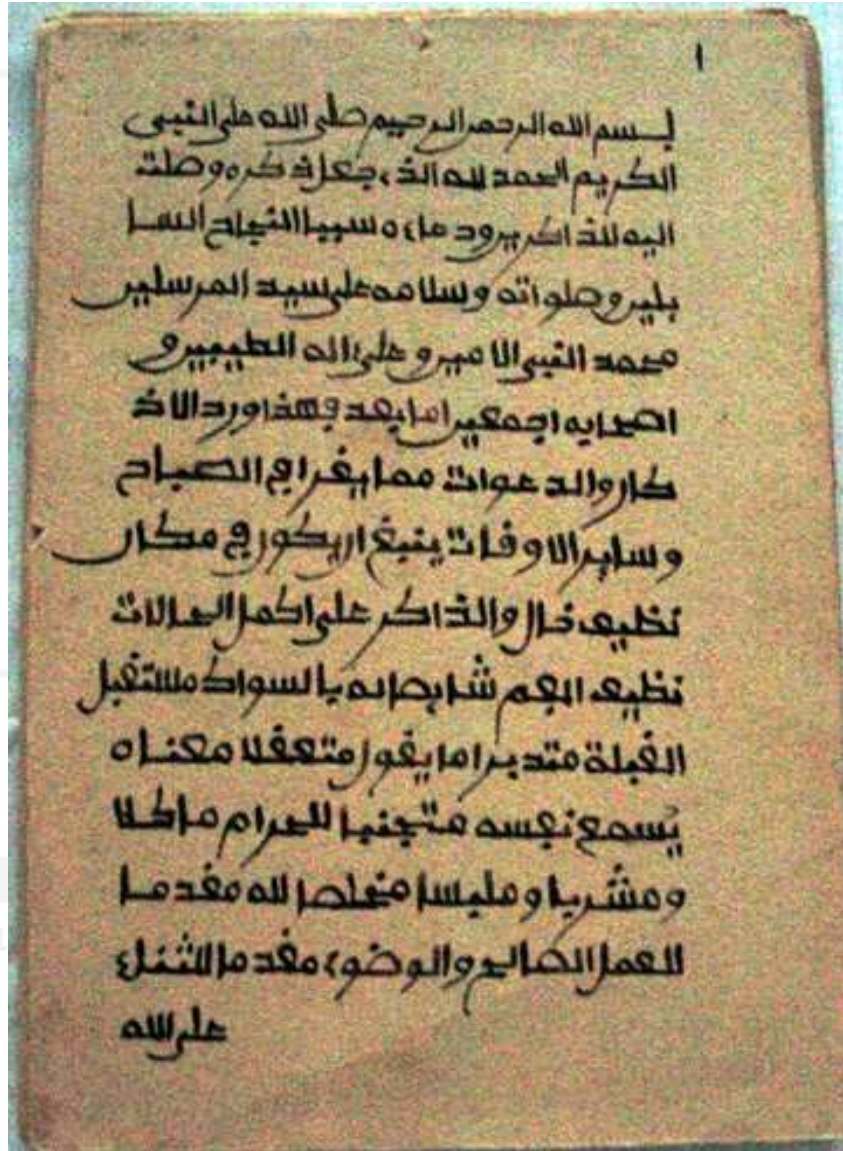 ١
بسم الله الرحمن الرحيم صلى الله على النبي
الكريم الحمد لله الذي جعل ذكره وصلت
اليه للذاكرين ودعاءه سببا للنجاح السا
يلين وصلواته وسلامه على سيد المرسلين
محمد النبي الامين وعلى ءاله الطيبين و
اصحابه اجمعين اما بعد فهذا ورد الاذ
كار والدعوات مما يقرا في الصباح
وساير الاوقات ينبغ ان يكون في مكان
نظيف خال والذاكر على اكمل الحالات
نظيف الفم بالسواك مستقبل
القبلة متدبرا ما يقول متعقلا معناه
يسمع نفسه متجنبا للحرام ماكلا
ومشربا وملبسا مخلصا لله مقدما
للعمل الصالح والوضوء مقدما للثناء
على الله